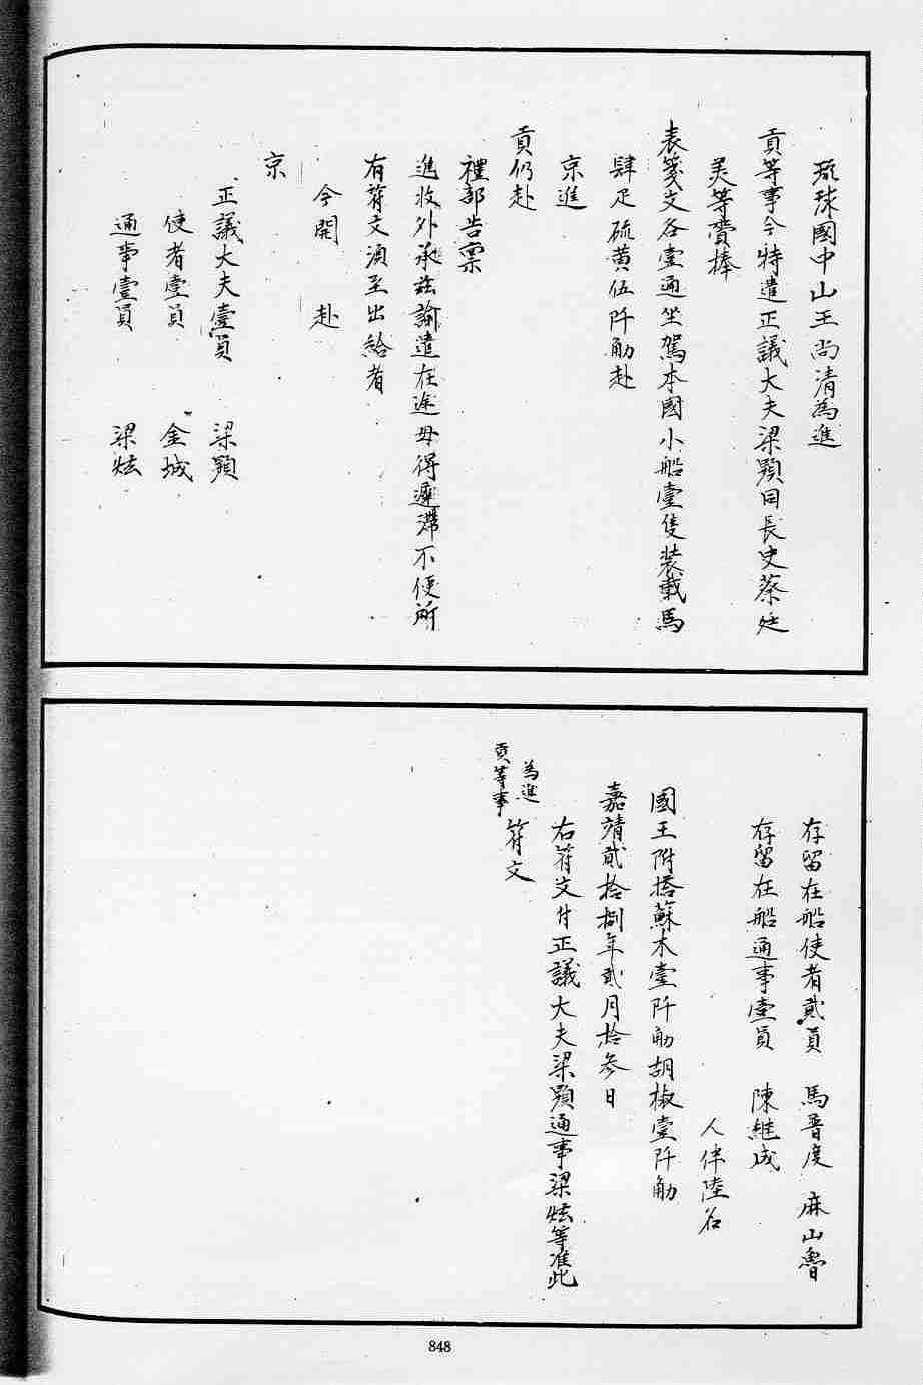 琉球國中山王尚清為進
貢等事今特遣正議大夫梁顯同長史蔡廷
美等賫捧
表箋文各壹通坐駕本國小船壹隻裝載馬
肆疋硫黃伍阡觔赴
京進
貢仍赴
禮部告稟
進收外承茲諭遣在途毋得遲滯不便所
有符文須至出給者
今開　赴
京
正議大夫壹員　梁顯
使者壹員　金城
通事壹員　梁炫
存留在船使者貳員　馬晋度　麻山魯
存留在船通事壹員　陳繼成
人伴陸名
國王附搭蘇木壹阡觔胡椒壹阡觔
嘉靖貳拾捌年貳月拾叁日
右符文付正議大夫梁顯通事梁炫等准此
為進
貢等事 符文
848